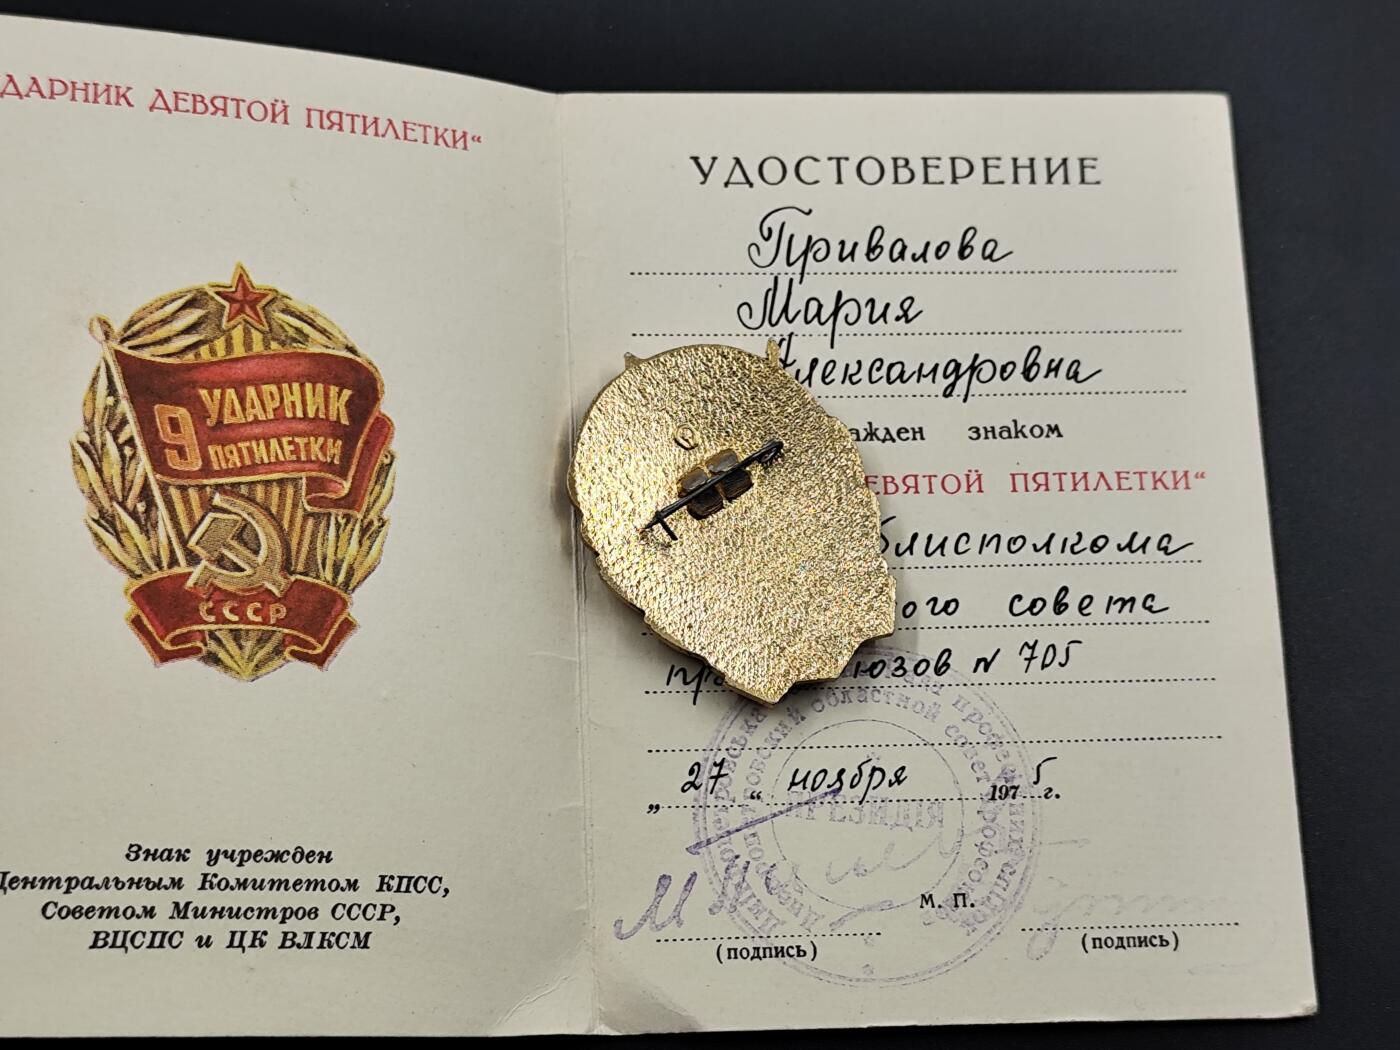 ДАРНИК ДЕВЯТОЙ ПЯТИЛЕТКИ“
9 УДАРНИК
ПЯТИЛЕТКИ
СССР
Знак учрежден
Центральным Комитетом КПСС,
Советом Министров СССР,
ВЦСПС и ЦК ВЛКСМ
УДОСТОВЕРЕНИЕ
Привалова
Мария
Александровна
ажден знаком
ЕВЯТОЙ ПЯТИЛЕТКИ“
блисполкома
ого совета
пр юзов N 705
„ 27 “ ноября 1975 г.
ПРЕЗИДІЯ
областной совет профсоюзов
М. П.
(подпись)
(подпись)